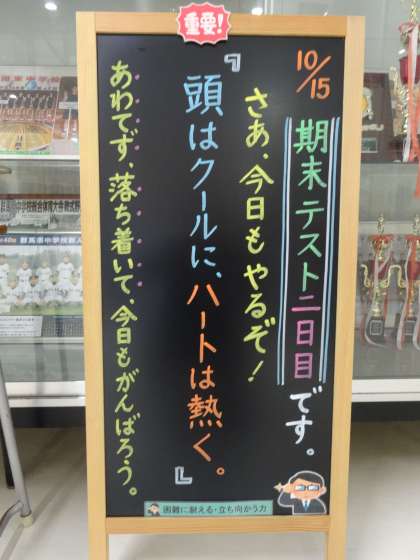 重要!
10/15
期末テスト二日目です。
さあ、今日もやるぞ!
『頭はクールに、ハートは熱く。』
あわてず、落ち着いて、今日もがんばろう。
困難に耐える・立ち向かう力